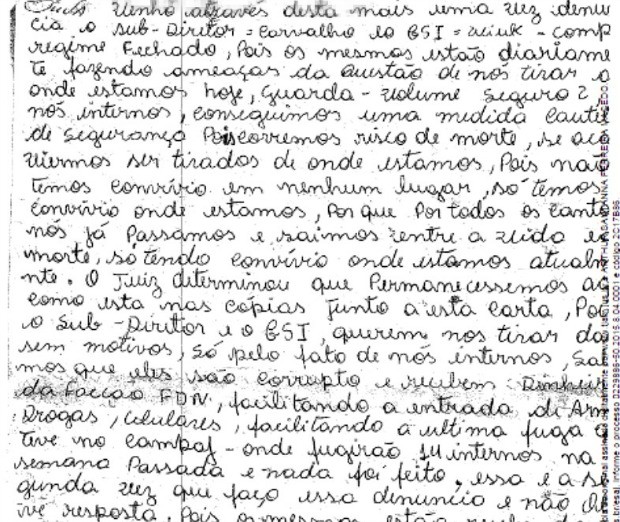 Juiz venho através desta mais uma vez denu
cia o sub-Diretor = carvalho e o GSI = - comp
regime Fechado, Pois os mesmos estão diariame
te fazendo ameaças da Questão de nos tirar
onde estamos hoje, guarda-volume seguro 2,
nós internos, conseguimos uma medida cautel
de segurança Pois corremos risco de morte, se aco
viermos ser tirados de onde estamos, Pois não
temos convívio em nenhum lugar, só temos
convívio onde estamos, Por que Por todos os canto
nos já Passamos e saimos entre a vida e
morte, só tendo convívio onde estamos atualm
nte. O Juiz determinou que Permanecessemos aq
como esta nas cópias junto a esta carta, Poi
o Sub-Diretor e o GSI, querem nos tirar da
sem motivos, só pelo fato de nós internos Sa
mos que eles são corrupto e recebem Dinheir
da Facção FDN, facilitando a entrada de Arm
Drogas, celulares, facilitando a ultima fuga
teve no compaj - onde fugirão internos na
semana Passada e nada foi feito, essa e a se
gunda vez que faço essa denuncia e não
ive resposta, Pois os mesmos estão
informe o processo 0229886-60.2016.8.04.0001 e código